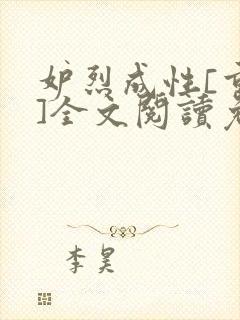 妒烈成性[重
]全文閱讀免
李昊